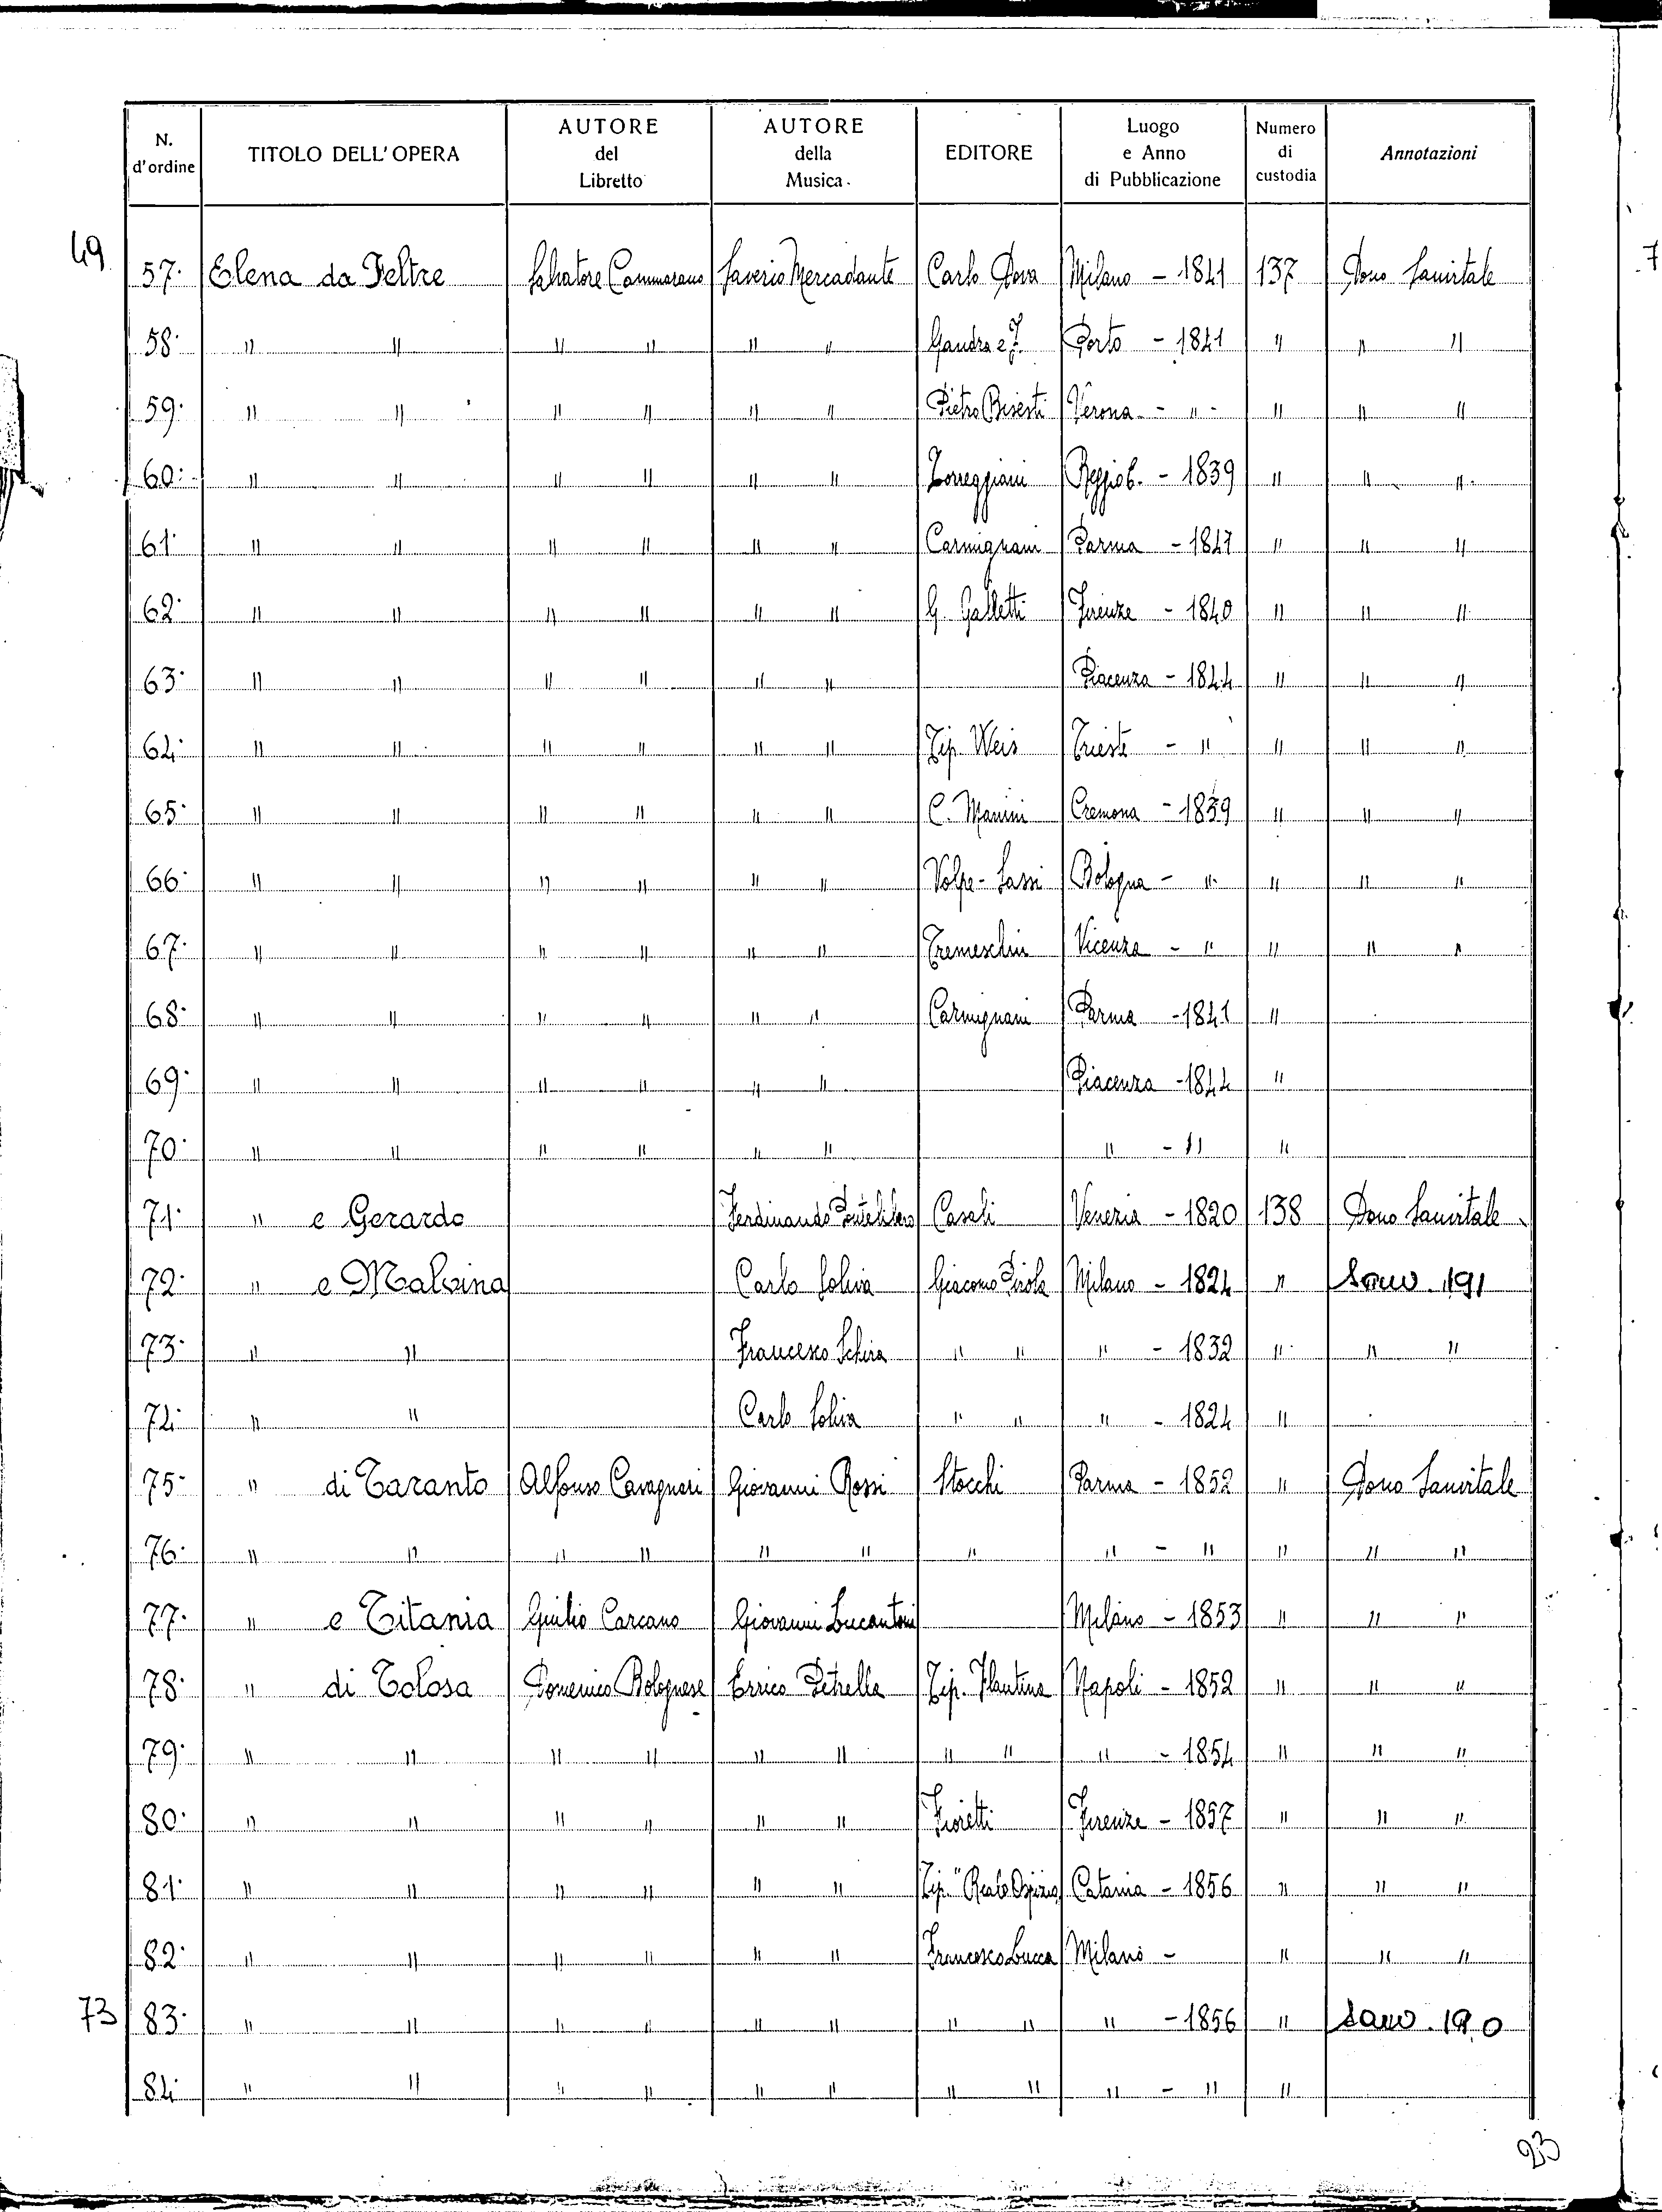 N. d'ordine | TITOLO DELL'OPERA | AUTORE del Libretto | AUTORE della Musica | EDITORE | Luogo e Anno di Pubblicazione | Numero di custodia | Annotazioni
49 57. | Elena da Feltre | Salvatore Cammarano | Saverio Mercadante | Carlo Dova | Milano - 1841 | 137 | Dono Sanvitale
58. | " " | " " | " " | Gandra e F. | Porto - 1841 | " | " "
59. | " " | " " | " " | Pietro Bisesti | Verona - " - | " | " "
60. | " " | " " | " " | Torreggiani | Reggio E. - 1839 | " | " "
61. | " " | " " | " " | Carmignani | Parma - 1847 | " | " "
62. | " " | " " | " " | G. Galletti | Firenze - 1840 | " | " "
63. | " " | " " | " " | | Piacenza - 1844 | " | " "
64. | " " | " " | " " | Tip. Weis | Trieste - " | " | " "
65. | " " | " " | " " | C. Manini | Cremona - 1839 | " | " "
66. | " " | " " | " " | Volpe - Sassi | Bologna - " | " | " "
67. | " " | " " | " " | Tremeschin | Vicenza - " | " | " "
68. | " " | " " | " " | Carmignani | Parma - 1841 | " |
69. | " " | " " | " " | | Piacenza - 1844 | " |
70. | " " | " " | " " | | " - " | " |
71. | " e Gerardo | | Ferdinando | Casali | Venezia - 1820 | 138 | Dono Sanvitale
72. | " e Malvina | | Carlo Soliva | Giacomo Pirola | Milano - 1824 | " | Sanv. 191
73. | " " | | Francesco Schira | " " | " - 1832 | " | " "
74. | " " | | Carlo Soliva | " " | " - 1824 | " |
75. | " di Taranto | Alfonso Cavagnari | Giovanni Rossi | Stocchi | Parma - 1852 | " | Dono Sanvitale
76. | " " | " " | " " | " | " - " | " | " "
77. | " e Titania | Giulio Carcano | Giovanni Lucantoni | | Milano - 1853 | " | " "
78. | " di Tolosa | Domenico Bolognese | Errico Petrella | Tip. Flautina | Napoli - 1852 | " | " "
79. | " " | " " | " " | " " | " - 1854 | " | " "
80. | " " | " " | " " | Fioretti | Firenze - 1857 | " | " "
81. | " " | " " | " " | Tip. "Reale Ospizio | Catania - 1856 | " | " "
82. | " " | " " | " " | Francesco Lucca | Milano - | " | " "
73 83. | " " | " " | " " | " " | " - 1856 | " | Sanv. 190
84. | " " | " " | " " | " " | " - " | " |
23